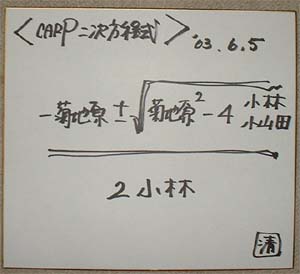 ＜CARP二次方程式＞ '03.6.5
－菊地原±√菊地原²－4小林小山田
2小林
清